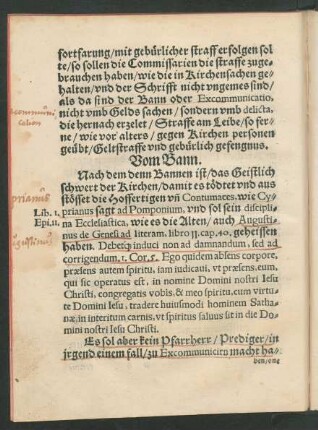 fortfarung/mit gebürlicher straff erfolgen sol
te/so sollen die Commissarien die straffe zuge
brauchen haben/wie die in Kirchensachen ge
halten/vnd der Schrifft nicht vngemes sind/
als da sind der Bann oder Excommunicatio,
nicht vmb Gelds sachen/sondern vmb delicta,
die hernach erzelet/Straffe am Leibe/so fer-
ne/wie vor alters/gegen Kirchen personen
geübt/Geltstraffe vnd gebürlich gefengnus.
Vom Bann.
Nach dem denn Bannen ist/das Geistlich
schwert der Kirchen/damit es tödtet vnd aus
stösset die Hoffertigen vñ Contumaces, wie Cy
Lib. 1. prianus sagt ad Pomponium, vnd sol sein disciplı
Epi. 11. na Ecclesiastica, wie es die Alten/auch Augusti-
nus de Genesi ad literam. libro 11. cap. 40. geheissen
haben. Debet q; induci non ad damnandum, sed ad
corrigendum, 1. Cor. 5. Ego quidem absens corpore,
præsens autem spiritu, iam iudicaui, vt præsens, eum,
qui sic operatus est, in nomine Domini nostri Iesu
Christi, congregatis vobis, & meo spiritu, cum virtu-
te Domini Iesu, tradere huiusmodi hominem Satha-
næ, in interitum carnis, vt spiritus saluus sit in die Do-
mini nostri Iesu Christi.
Es sol aber kein Pfarrherr/Prediger/in
jrgend einem fall/zu Excommunicirn macht ha-
ben/